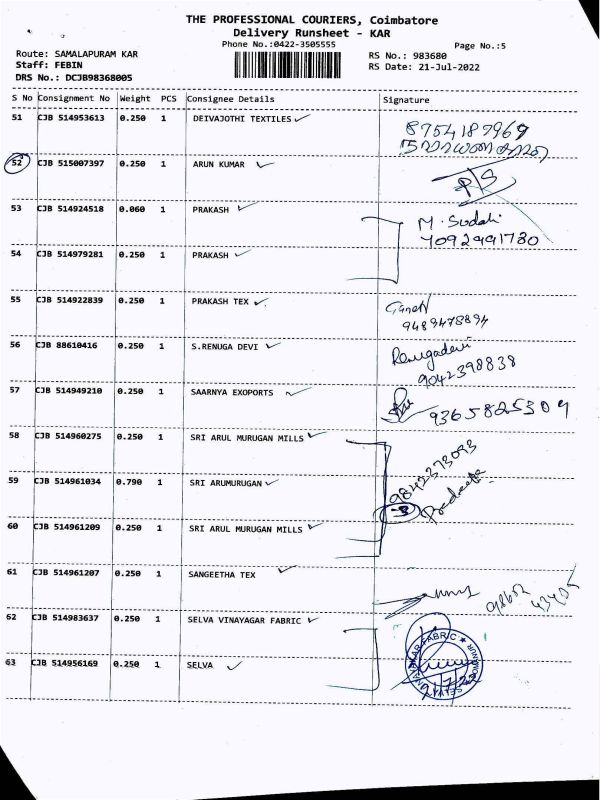 THE PROFESSIONAL COURIERS, Coimbatore
Delivery Runsheet - KAR
Phone No.:0422-3505555
Page No.:5
Route: SAMALAPURAM KAR
Staff: FEBIN
DRS No.: DCJB98368005
RS No.: 983680
RS Date: 21-Jul-2022
S No Consignment No Weight PCS Consignee Details Signature
51 CJB 514953613 0.250 1 DEIVAJOTHI TEXTILES
8754187969
52 CJB 515007397 0.250 1 ARUN KUMAR
53 CJB 514924518 0.060 1 PRAKASH
M. Sudahi
7092991780
54 CJB 514979281 0.250 1 PRAKASH
55 CJB 514922839 0.250 1 PRAKASH TEX
9489478894
56 CJB 88610416 0.250 1 S.RENUGA DEVI
Renugadevi
9042398838
57 CJB 514949210 0.250 1 SAARNYA EXOPORTS
9365825309
58 CJB 514960275 0.250 1 SRI ARUL MURUGAN MILLS
9842373093
59 CJB 514961034 0.790 1 SRI ARUMURUGAN
-3 Pradeepa
60 CJB 514961209 0.250 1 SRI ARUL MURUGAN MILLS
61 CJB 514961207 0.250 1 SANGEETHA TEX
62 CJB 514983637 0.250 1 SELVA VINAYAGAR FABRIC
63 CJB 514956169 0.250 1 SELVA